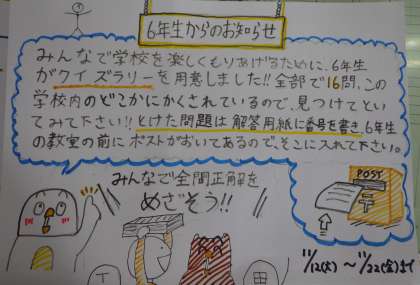 6年生からのお知らせ
みんなで学校を楽しくもりあげるために、6年生
がクイズラリーを用意しました!!全部で16問、この
学校内のどこかにかくされているので、見つけてとい
てみて下さい!!とけた問題は解答用紙に番号を書き、6年生
の教室の前にポストがおいてあるので、そこに入れて下さい。
みんなで全問正解を
めざそう!!
POST
〒
11/12(火)～11/22(金)まで